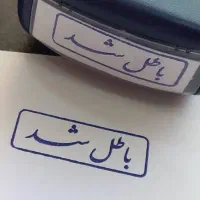 باطل شد
باطل شد